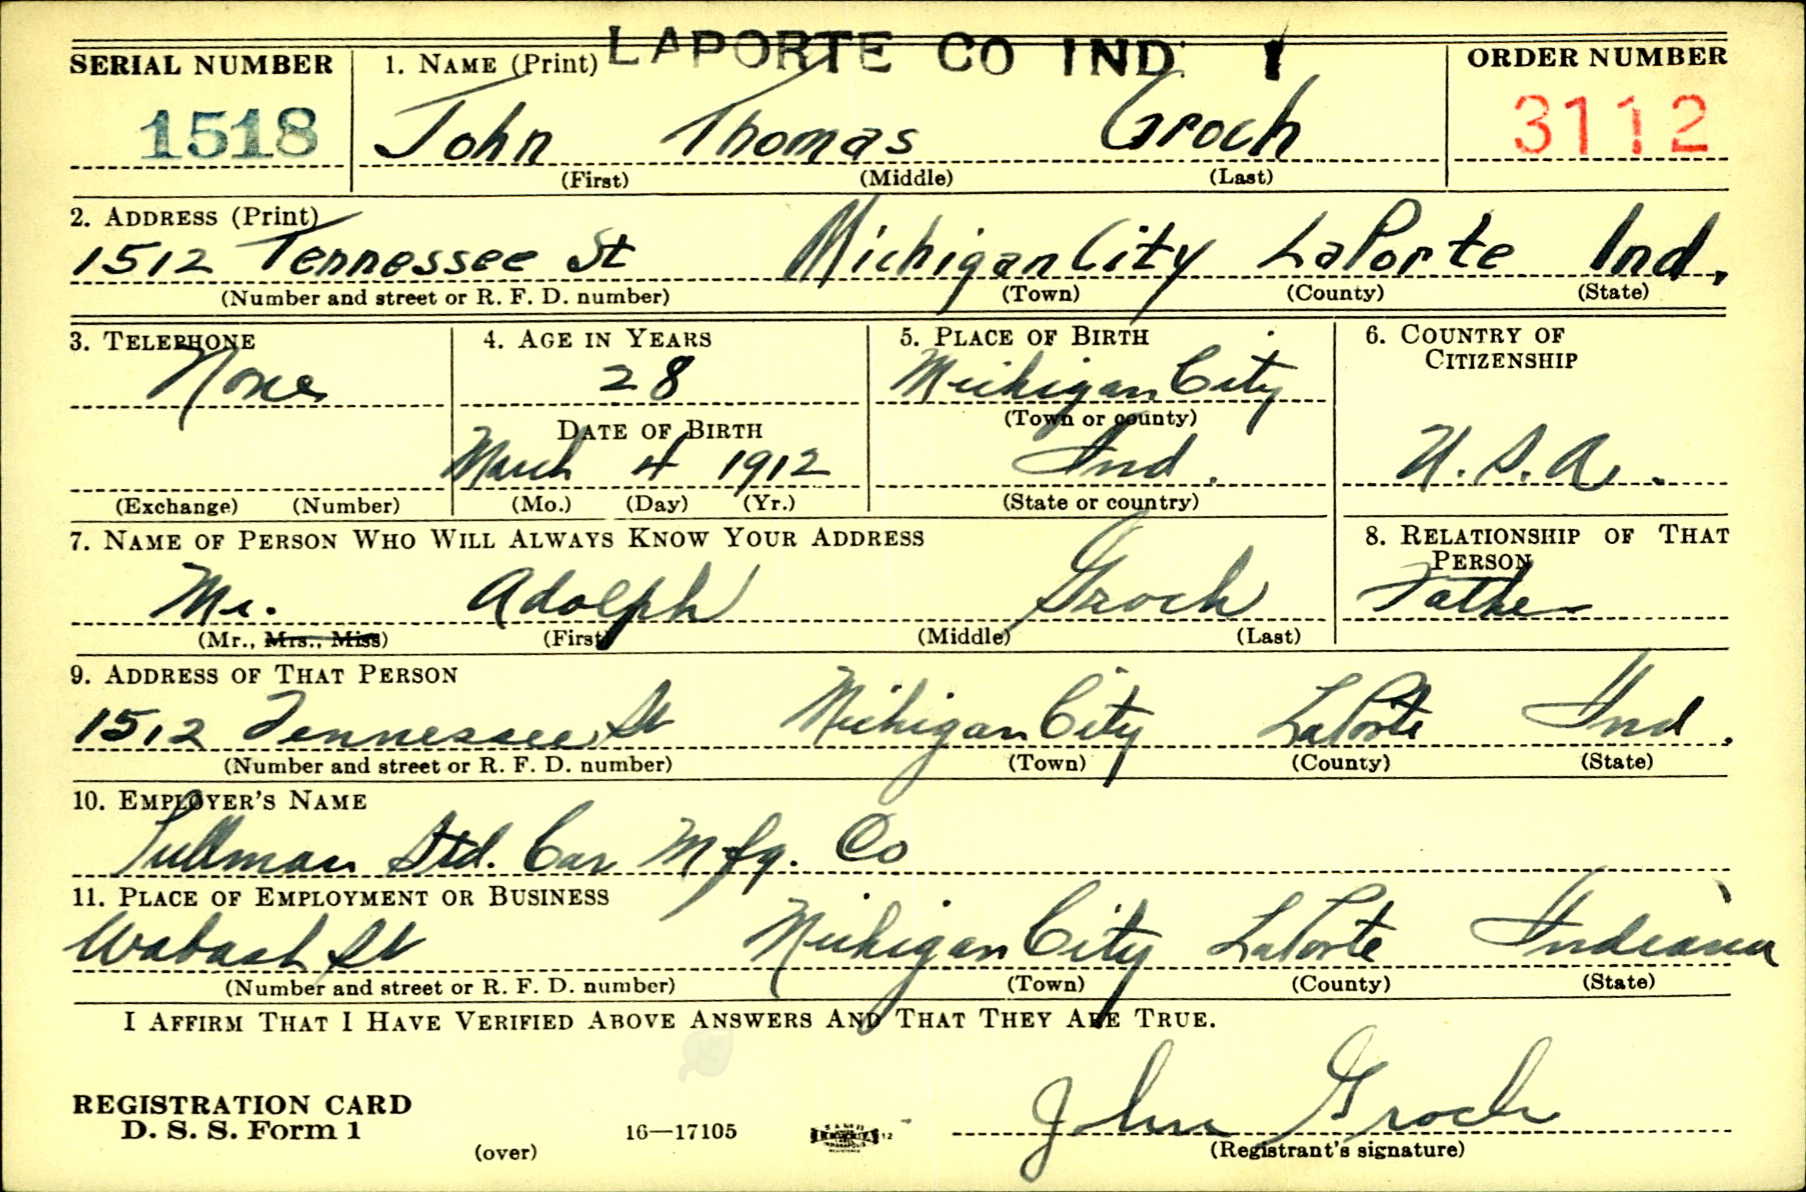 LAPORTE CO IND. 1
SERIAL NUMBER 1. NAME (Print) ORDER NUMBER
1518 John Thomas Groch 3112
(First) (Middle) (Last)
2. ADDRESS (Print)
1512 Tennessee St Michigan City LaPorte Ind.
(Number and street or R. F. D. number) (Town) (County) (State)
3. TELEPHONE 4. AGE IN YEARS 5. PLACE OF BIRTH 6. COUNTRY OF
CITIZENSHIP
None 28 Michigan City
(Town or county)
DATE OF BIRTH
March 4 1912 Ind. U.S.A.
(Exchange) (Number) (Mo.) (Day) (Yr.) (State or country)
7. NAME OF PERSON WHO WILL ALWAYS KNOW YOUR ADDRESS 8. RELATIONSHIP OF THAT
PERSON
Mr. Adolph Groch Father
(Mr., Mrs., Miss) (First) (Middle) (Last)
9. ADDRESS OF THAT PERSON
1512 Tennessee St Michigan City LaPorte Ind.
(Number and street or R. F. D. number) (Town) (County) (State)
10. EMPLOYER'S NAME
Pullman Std. Car Mfg. Co
11. PLACE OF EMPLOYMENT OR BUSINESS
Wabash St Michigan City LaPorte Indiana
(Number and street or R. F. D. number) (Town) (County) (State)
I AFFIRM THAT I HAVE VERIFIED ABOVE ANSWERS AND THAT THEY ARE TRUE.
John Groch
REGISTRATION CARD
D. S. S. Form 1 (over) 16—17105 (Registrant's signature)